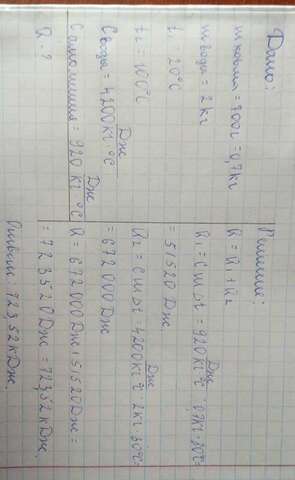 Дано:
m ковша = 700г = 0,7кг
m воды = 2 кг
t₁ = 20°C
t₂ = 100°C
C воды = 4200 Дж/кг·°C
C алюминия = 920 Дж/кг·°C
Q - ?
Решение:
Q = Q₁ + Q₂
Q₁ = cmΔt = 920 Дж/кг·°C · 0,7кг · 80°C =
= 51520 Дж.
Q₂ = cmΔt 4200 Дж/кг·°C · 2кг · 80°C =
= 672 000 Дж
Q = 672 000 Дж + 51520 Дж =
= 723520 Дж = 723,52 кДж.
Ответ: 723,52 кДж.